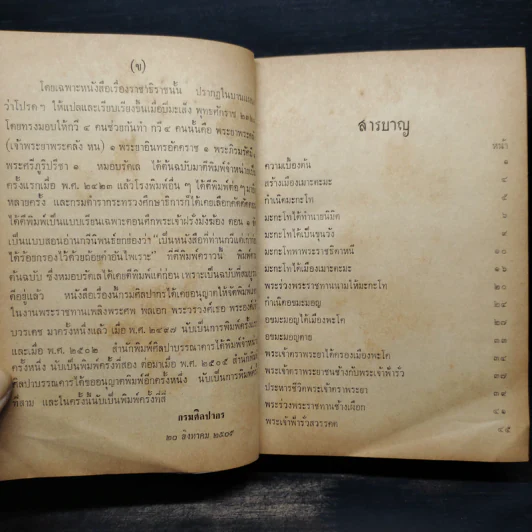 (ข)
โดยเฉพาะหนังสือเรื่องราชาธิราชนั้น ปรากฏในบานแผนก
ว่าโปรด ฯ ให้แปลและเรียบเรียงขึ้นเมื่อปีมะเส็ง พุทธศักราช
โดยทรงมอบให้กวี ๔ คนช่วยกันทำ กวี ๔ คนนั้นคือ พระยาพระคลัง
(เจ้าพระยาพระคลัง หน) ๑ พระยาอินทรอัคคราช ๑ พระภิรมรัศมี
พระศรีภูริปรีชา ๑ หมอบรัดเล ได้ต้นฉบับมาตีพิมพ์จำหน่าย
ครั้งแรกเมื่อ พ.ศ. ๒๔๒๓ แล้วโรงพิมพ์อื่น ๆ ได้ตีพิมพ์ต่อ ๆ มา
หลายครั้ง และกรมตำรากระทรวงศึกษาธิการก็ได้เคยเลือกคัด
ได้ตีพิมพ์เป็นแบบเรียนเฉพาะตอนศึกพระเจ้าฝรั่งมังฆ้อง ตอน ๑
เป็นแบบสอนอ่านกวีนิพนธ์ยกย่องว่า "เป็นหนังสือที่ท่านกวีแต่เก่าก่อน
ได้ร้อยกรองไว้ด้วยถ้อยคำอันไพเราะ" ที่ตีพิมพ์คราวนั้น พิมพ์ตาม
ต้นฉบับ ซึ่งหมอบรัดเลได้เคยตีพิมพ์แต่ก่อน เพราะเป็นฉบับที่สมบูรณ์
ดีอยู่แล้ว หนังสือเรื่องนี้กรมศิลปากรได้เคยอนุญาตให้จัดพิมพ์
ในงานพระราชทานเพลิงพระศพ พลเอก พระวรวงศ์เธอ พระองค์เจ้า
บวรเดช มาครั้งหนึ่งแล้ว เมื่อ พ.ศ. ๒๔๙๗ นับเป็นการพิมพ์ครั้ง
และเมื่อ พ.ศ. ๒๕๐๒ สำนักพิมพ์ศิลปาบรรณาคารได้พิมพ์จำหน่าย
ครั้งหนึ่ง นับเป็นพิมพ์ครั้งที่สอง ต่อมาเมื่อ พ.ศ. ๒๕๐๕ สำนักพิมพ์
ศิลปาบรรณาคารได้ขออนุญาตพิมพ์อีกครั้งหนึ่ง นับเป็นการพิมพ์ครั้ง
ที่สาม และในครั้งนี้นับเป็นพิมพ์ครั้งที่สี่
กรมศิลปากร
๒๐ สิงหาคม ๒๕๐๙
สารบาญ
หน้า
ความเบื้องต้น ๑
สร้างเมืองเมาะตะมะ ๔
กำเนิดมะกะโท ๕
มะกะโทได้ทำนายนิมิต ๘
มะกะโทได้เป็นขุนวัง ๙
มะกะโทพาพระราชธิดาหนี ๑๑
มะกะโทได้เมืองเมาะตะมะ ๑๖
พระร่วงพระราชทานนามให้มะกะโท ๒๐
กำเนิดอขะมะมอญ ๒๔
อขะมะมอญได้เมืองพะโค
อขะมะมอญตาย
พระเจ้าตราพระยาได้ครองเมืองพะโค
พระเจ้าตราพระยาชนช้างกับพระเจ้าฟ้ารั่ว
ประหารชีวิตพระเจ้าตราพระยา
พระร่วงพระราชทานช้างเผือก
พระเจ้าฟ้ารั่วสวรรคต ๔๕